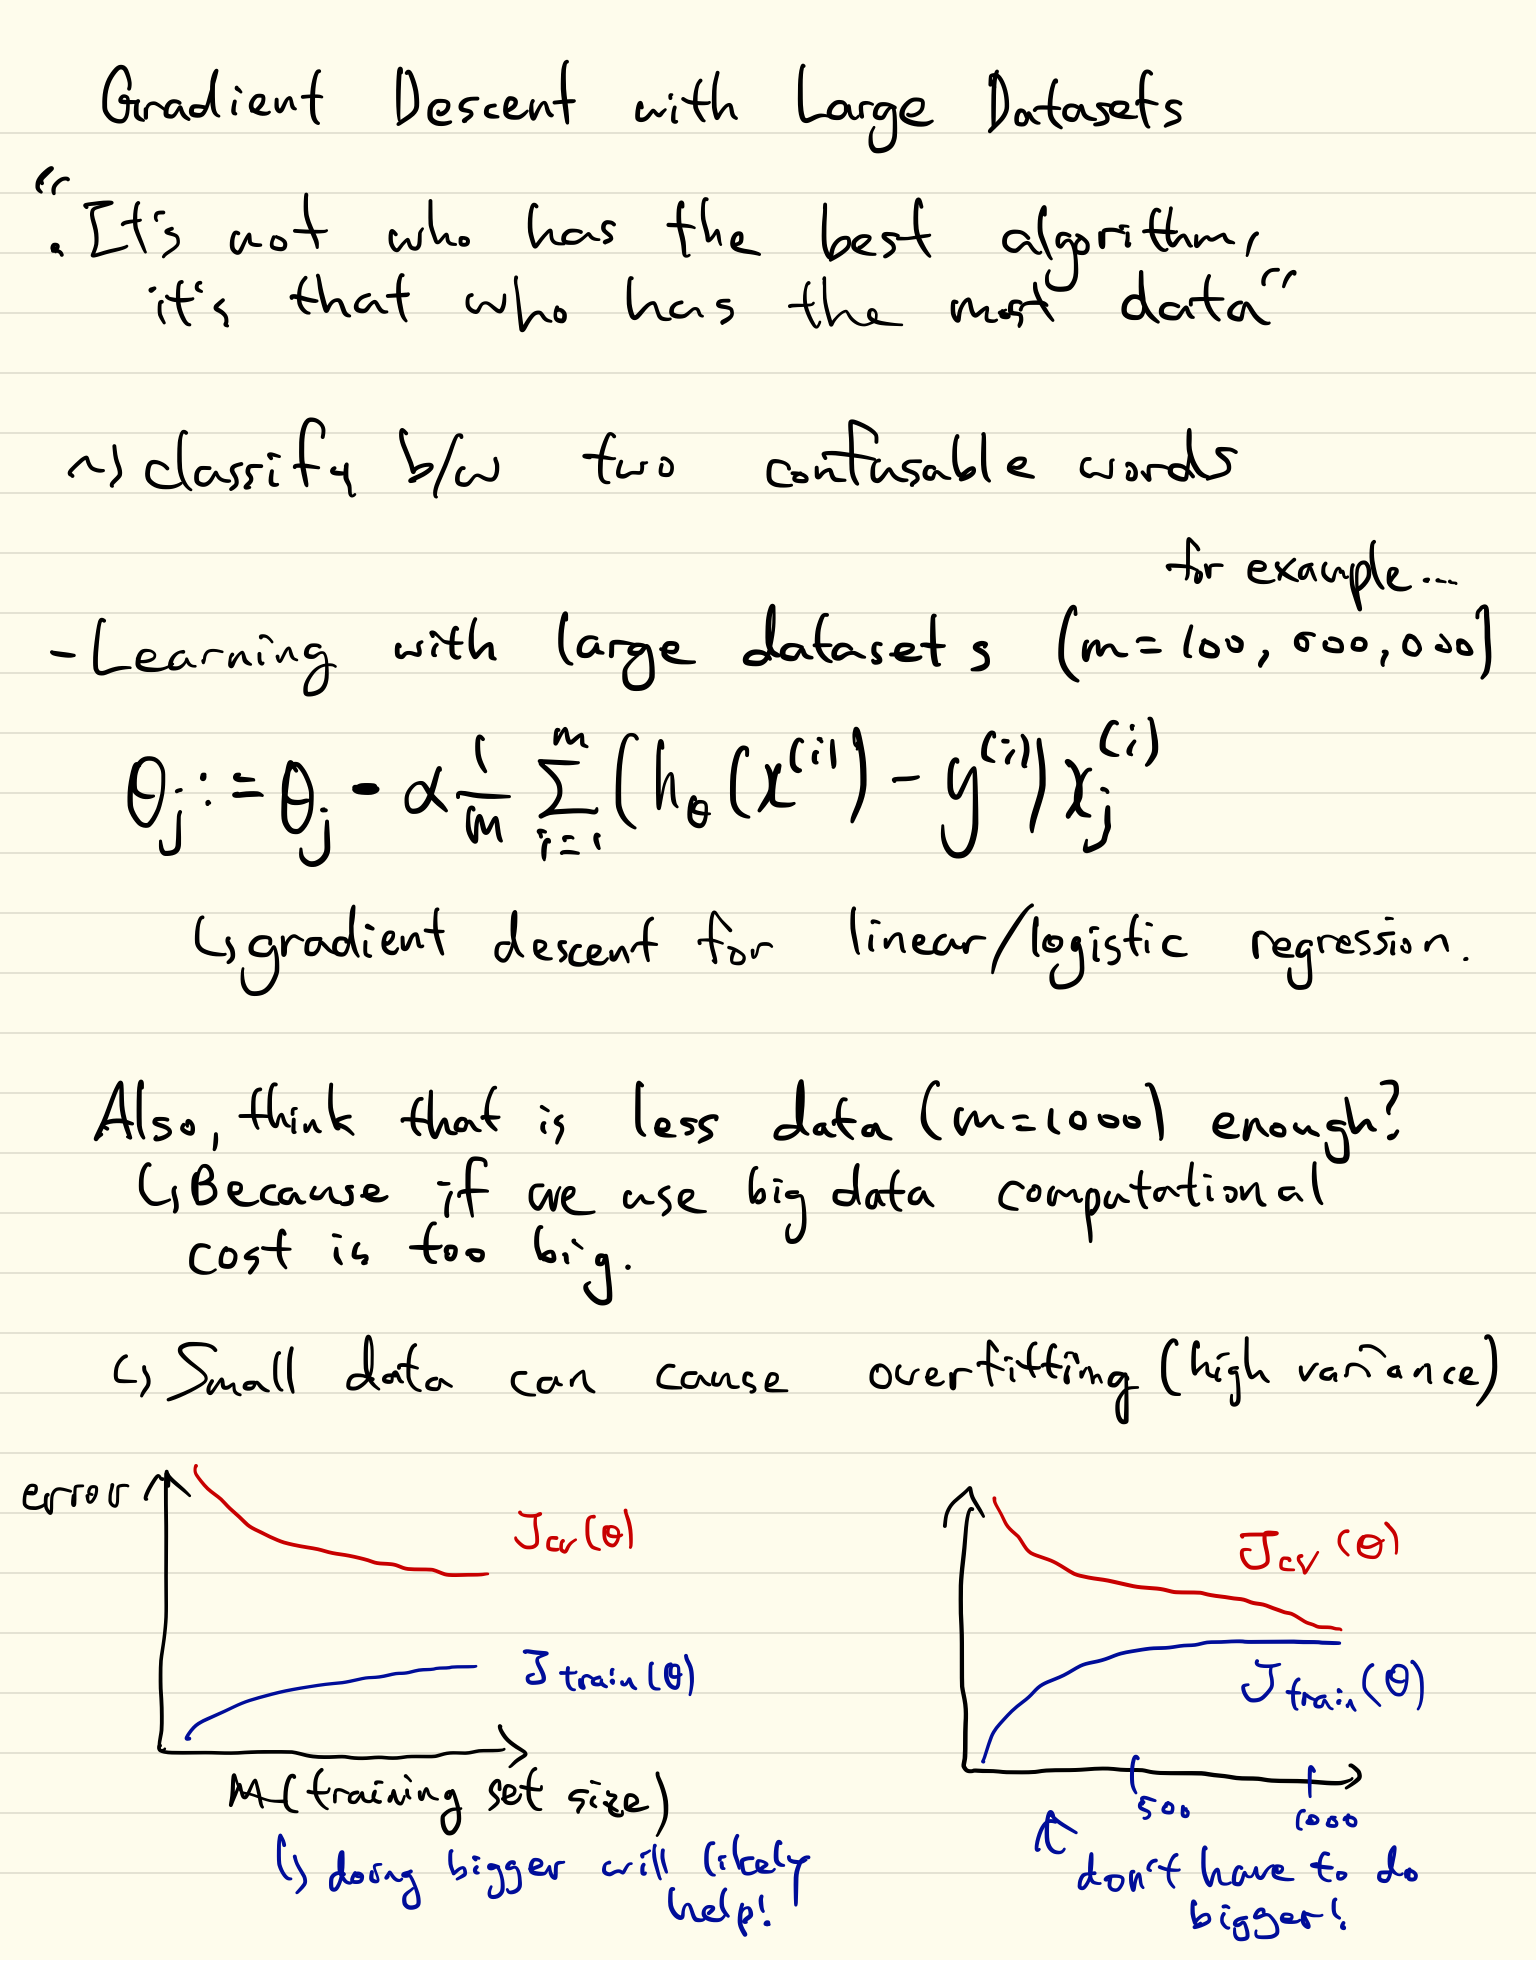 Gradient Descent with Large Datasets
"It's not who has the best algorithm,
it's that who has the most data"
~> classify b/w two confusable words
for example...
- Learning with large datasets (m = 100,000,000)
θj := θj - α 1/m Σ_{i=1}^{m} (hθ(x^(i)) - y^(i)) xj^(i)
↳ gradient descent for linear/logistic regression.
Also, think that is less data (m=1000) enough?
↳ Because if we use big data computational
cost is too big.
↳ Small data can cause overfitting (high variance)
error
Jcv(θ)
Jtrain(θ)
M (training set size)
↳ doing bigger will likely
help!
Jcv(θ)
Jtrain(θ)
500
1000
↑ don't have to do
bigger!